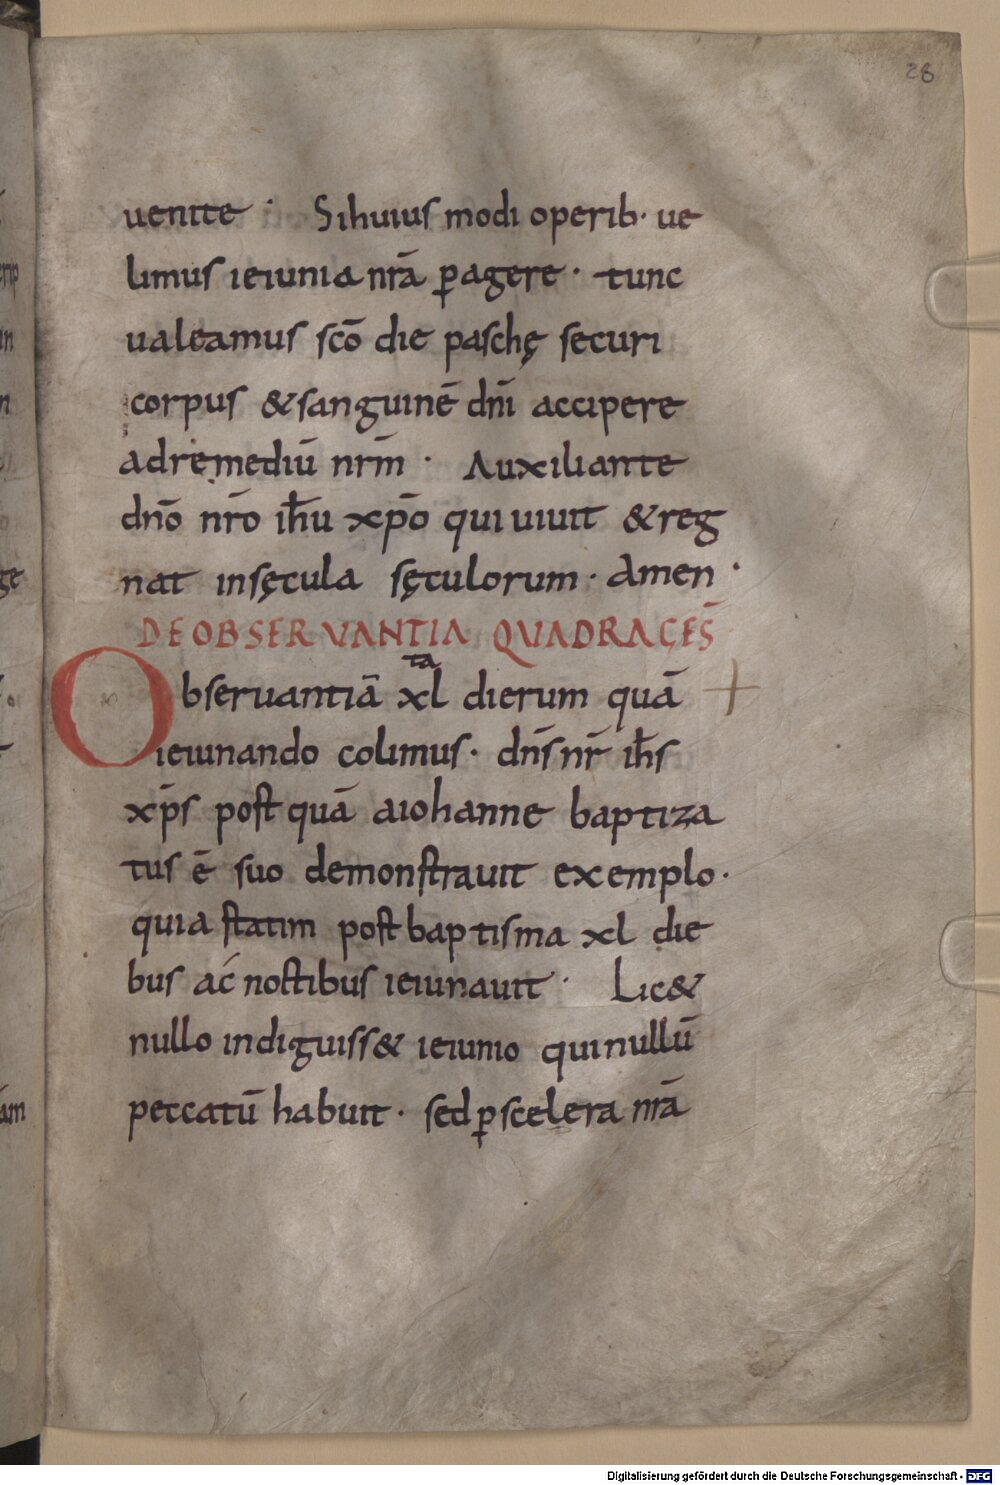 28
uenite · Sihuius modi operib· ue
limus ieiunia nr̄a ꝑagere · tunc
ualeamus sc̄o die paschę securi
corpus & sanguinē dn̄i accipere
adremediū nr̄m · Auxiliante
dn̄o nr̄o ih̄u xp̄o qui uiuit & reg
nat insęcula sęculorum · Amen ·
DE OBSERVANTIA QUADRAGES̄
Obseruantiā xl^ta dierum quā
ieiunando colimus · dn̄s nr̄ ih̄s
xp̄s post quā aiohanne baptiza
tus ē suo demonstrauit exemplo ·
quia statim post baptisma xl die
bus ac noctibus ieiunauit · Lic&
nullo indiguiss& ieiunio quinullū
peccatū habuit · sed ꝑ scelera nr̄a
Digitalisierung gefördert durch die Deutsche Forschungsgemeinschaft - DFG